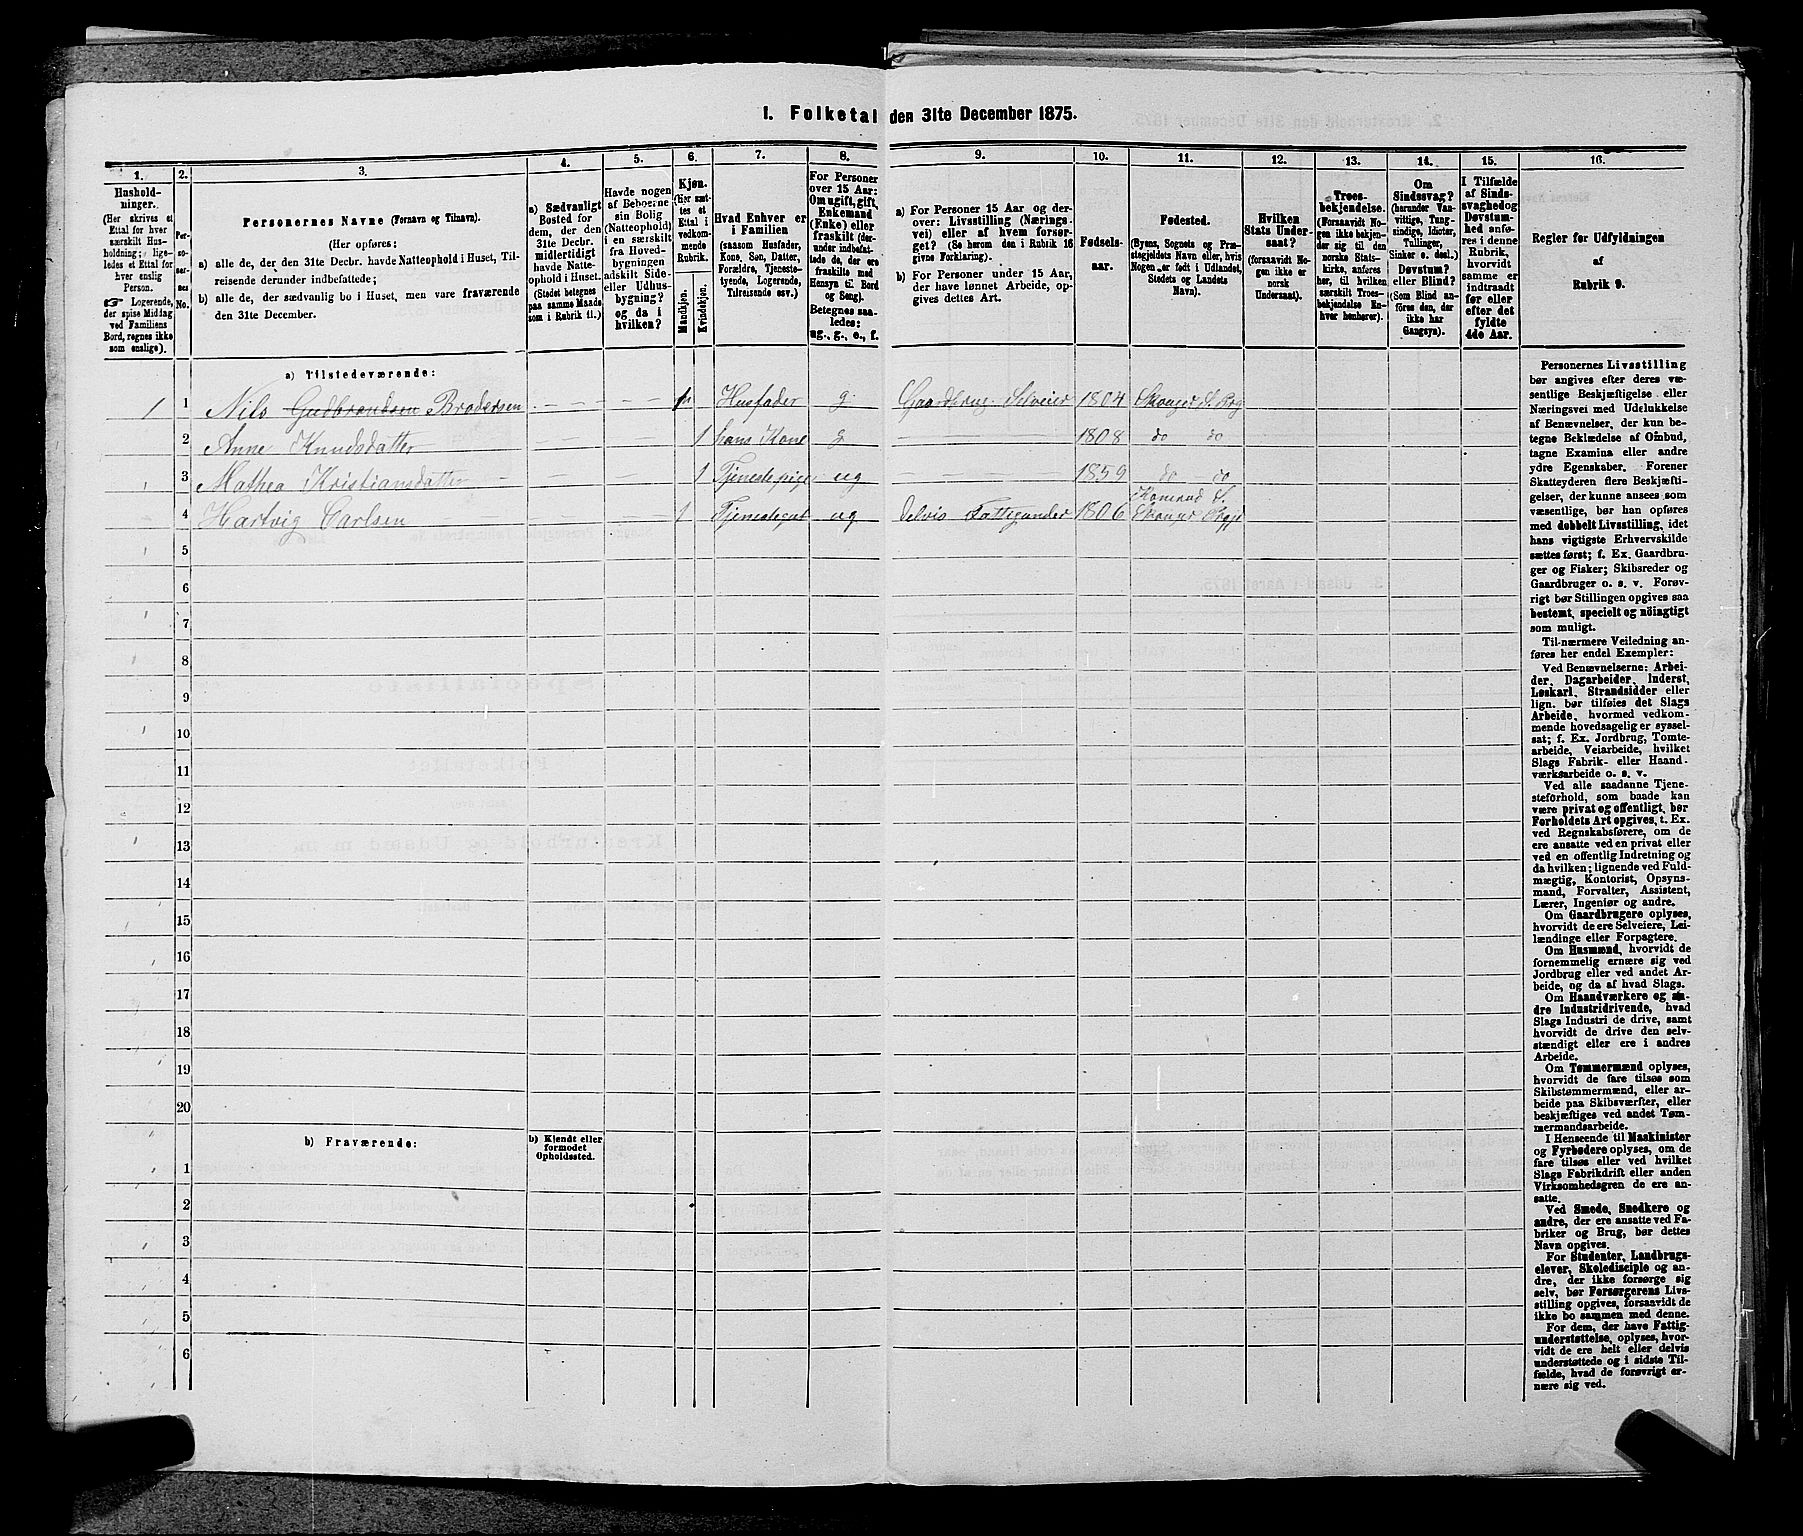 1. Folketal den 31te December 1875.
1.
2.
3.
4.
5.
6.
7.
8.
9.
10.
11.
12.
13.
14.
15.
16.
Hushold-
ninger.
(Her skrives et
Ettal for hver
særskilt Hus-
holdning; lige-
ledes et Ettal for
hver enslig
Person.
☞ Logerende,
der spise Middag
ved Familiens
Bord, regnes ikke
som enslige).
Per-
so-
ner-
nes
No.
Personernes Navne (Fornavn og Tilnavn).
(Her opføres:
a) alle de, der den 31te Decbr. havde Natteophold i Huset, Til-
reisende derunder indbefattede;
b) alle de, der sædvanlig bo i Huset, men vare fraværende
den 31te December.
a) Sædvanligt
Bosted for
dem, der den
31te Decbr.
midlertidigt
havde Natte-
ophold i Huset.
(Stedet betegnes
paa samme Maade
som i Rubrik 11.)
Havde nogen
af Beboerne
sin Bolig
(Natteophold)
i en særskilt
fra Hoved-
bygningen
adskilt Side-
eller Udhus-
bygning?
og da i
hvilken?
Kjøn.
(Her sæt-
tes et
Ettal i
vedkom-
mende
Rubrik.
Mandkjøn.
Kvindekjøn.
Hvad Enhver er
i Familien
(saasom Husfader,
Kone, Søn, Datter,
Forældre, Tjeneste-
tyende, Logerende,
Tilreisende osv.)
For Personer
over 15 Aar:
Om ugift, gift,
Enkemand
(Enke) eller
fraskilt (der-
under indbefat-
tede de, der ere
fraskilte med
Hensyn til Bord
og Seng).
Betegnes saa-
ledes:
ug., g., e., f.
a) For Personer 15 Aar og der-
over: Livsstilling (Nærings-
vei) eller af hvem forsør-
get? (Se herom den i Rubrik 16
givne Forklaring).
b) For Personer under 15 Aar,
der have lønnet Arbeide, op-
gives dettes Art.
Fødsels-
aar.
Fødested.
(Byens, Sognets og Præ-
stegjeldets Navn eller, hvis
Nogen er født i Udlandet,
Stedets og Landets
Navn).
Hvilken
Stats Under-
saat?
(forsaavidt No-
gen ikke er
norsk
Undersaat).
Troes-
bekjendelse.
(Forsaavidt No-
gen ikke bekjen-
der sig til den
norske Stats-
kirke, anføres
her, til hvilken
særskilt Troes-
bekjendelse En-
hver henhører).
Om
Sindssvag?
(herunder Van-
vittige, Tung-
sindige, Idioter,
Tullinger,
Sinker o. desl.)
Døvstum?
eller Blind?
(Som Blind an-
føres den, der
ikke har
Gangsyn).
I Tilfælde
af Sinds-
svaghed og
Døvstum-
hed anfø-
res i denne
Rubrik,
hvorvidt
samme er
indtraadt
før eller
efter det
fyldte
4de Aar.
Regler for Udfyldningen
af
Rubrik 9.
a) Tilstedeværende:
1 1 Nils Gudbrandsen Brodersen Husfader g Gaardbrug. Selveier 1804
2 Anne Knudsdatter 1 hans Kone g 1808 do do
3 Mathea Kristiansdatter 1 Tjenestepige ug 1859 do do
4 Hartvig Carlsen 1 Tjenestegut ug delvis 1806
5
6
7
8
9
10
11
12
13
14
15
16
17
18
19
20
b) Fraværende:
b) Kjendt eller
formodet
Opholdssted.
1
2
3
4
5
6
Personernes Livsstilling
bør angives efter deres væ-
sentlige Beskjæftigelse eller
Næringsvei med Udelukkelse
af Benævnelser, der kun be-
tegne Beklædelse af Ombud,
tagne Examina eller andre
ydre Egenskaber. Forener
Skatteyderen flere Beskjæfti-
gelser, der kunne ansees som
væsentlige, bør han opføres
med dobbelt Livsstilling, idet
hans vigtigste Erhvervskilde
sættes først; f. Ex. Gaardbru-
ger og Fisker; Skibsreder og
Gaardbruger o. s. v. Forøv-
rigt bør Stillingen opgives saa
bestemt, specielt og nöiagtigt
som muligt.
Til nærmere Veiledning an-
føres her endel Exempler:
Ved Benævnelserne: Arbei-
der, Dagarbeider, Inderst,
Løskarl, Strandsidder eller
lign. bør tilføies det Slags
Arbeide, hvormed vedkom-
mende hovedsagelig er syssel-
sat; f. Ex. Jordbrug, Tomte-
arbeide, Veiarbeide, hvilket
Slags Fabrik- eller Haand-
værksarbeide o. s. v.
Ved alle saadanne Tjene-
steforhold, som baade kan
være privat og offentligt, bør
Forholdets Art opgives, t. Ex.
ved Regnskabsførere, om de
ere ansatte ved en privat eller
ved en offentlig Indretning og
da hvilken; lignende ved Fuld-
mægtig, Kontorist, Opsyns-
mand, Forvalter, Assistent,
Lærer, Ingeniør og andre.
Om Gaardbrugere oplyses,
hvorvidt de ere Selveiere, Lei-
lændinge eller Forpagtere.
Om Husmænd, hvorvidt de
fornemmelig ernære sig ved
Jordbrug eller ved andet Ar-
beide, og da af hvad Slags.
Om Haandværkere og an-
dre Industridrivende, hvad
Slags Industri de drive, samt
hvorvidt de drive den selv-
stændigt eller ere i andres
Arbeide.
Om Tømmermænd oplyses,
hvorvidt de fare tilsøs som
Skibstømmermænd, eller ar-
beide paa Skibsværfter, eller
beskjæftiges ved andet Tøm-
mermandsarbeide.
I Henseende til Maskinister
og Fyrbødere oplyses, om de
fare tilsøs eller ved hvilket
Slags Fabrikdrift eller anden
Virksomhedsgren de ere an-
satte.
Ved Smede, Snedkere og
andre, der ere ansatte ved Fa-
briker og Brug, bør dettes
Navn opgives.
For Studenter, Landbrugs-
elever, Skoledisciple og an-
dre, der ikke forsørge sig
selv, bør Forsørgerens Livs-
stilling opgives, forsaavidt de
ikke bo sammen med denne.
For dem, der have Fattig-
understøttelse, oplyses, hvor-
vidt de ere helt eller delvis
understøttede og i sidste Til-
fælde, hvad de forøvrigt er-
nære sig ved.